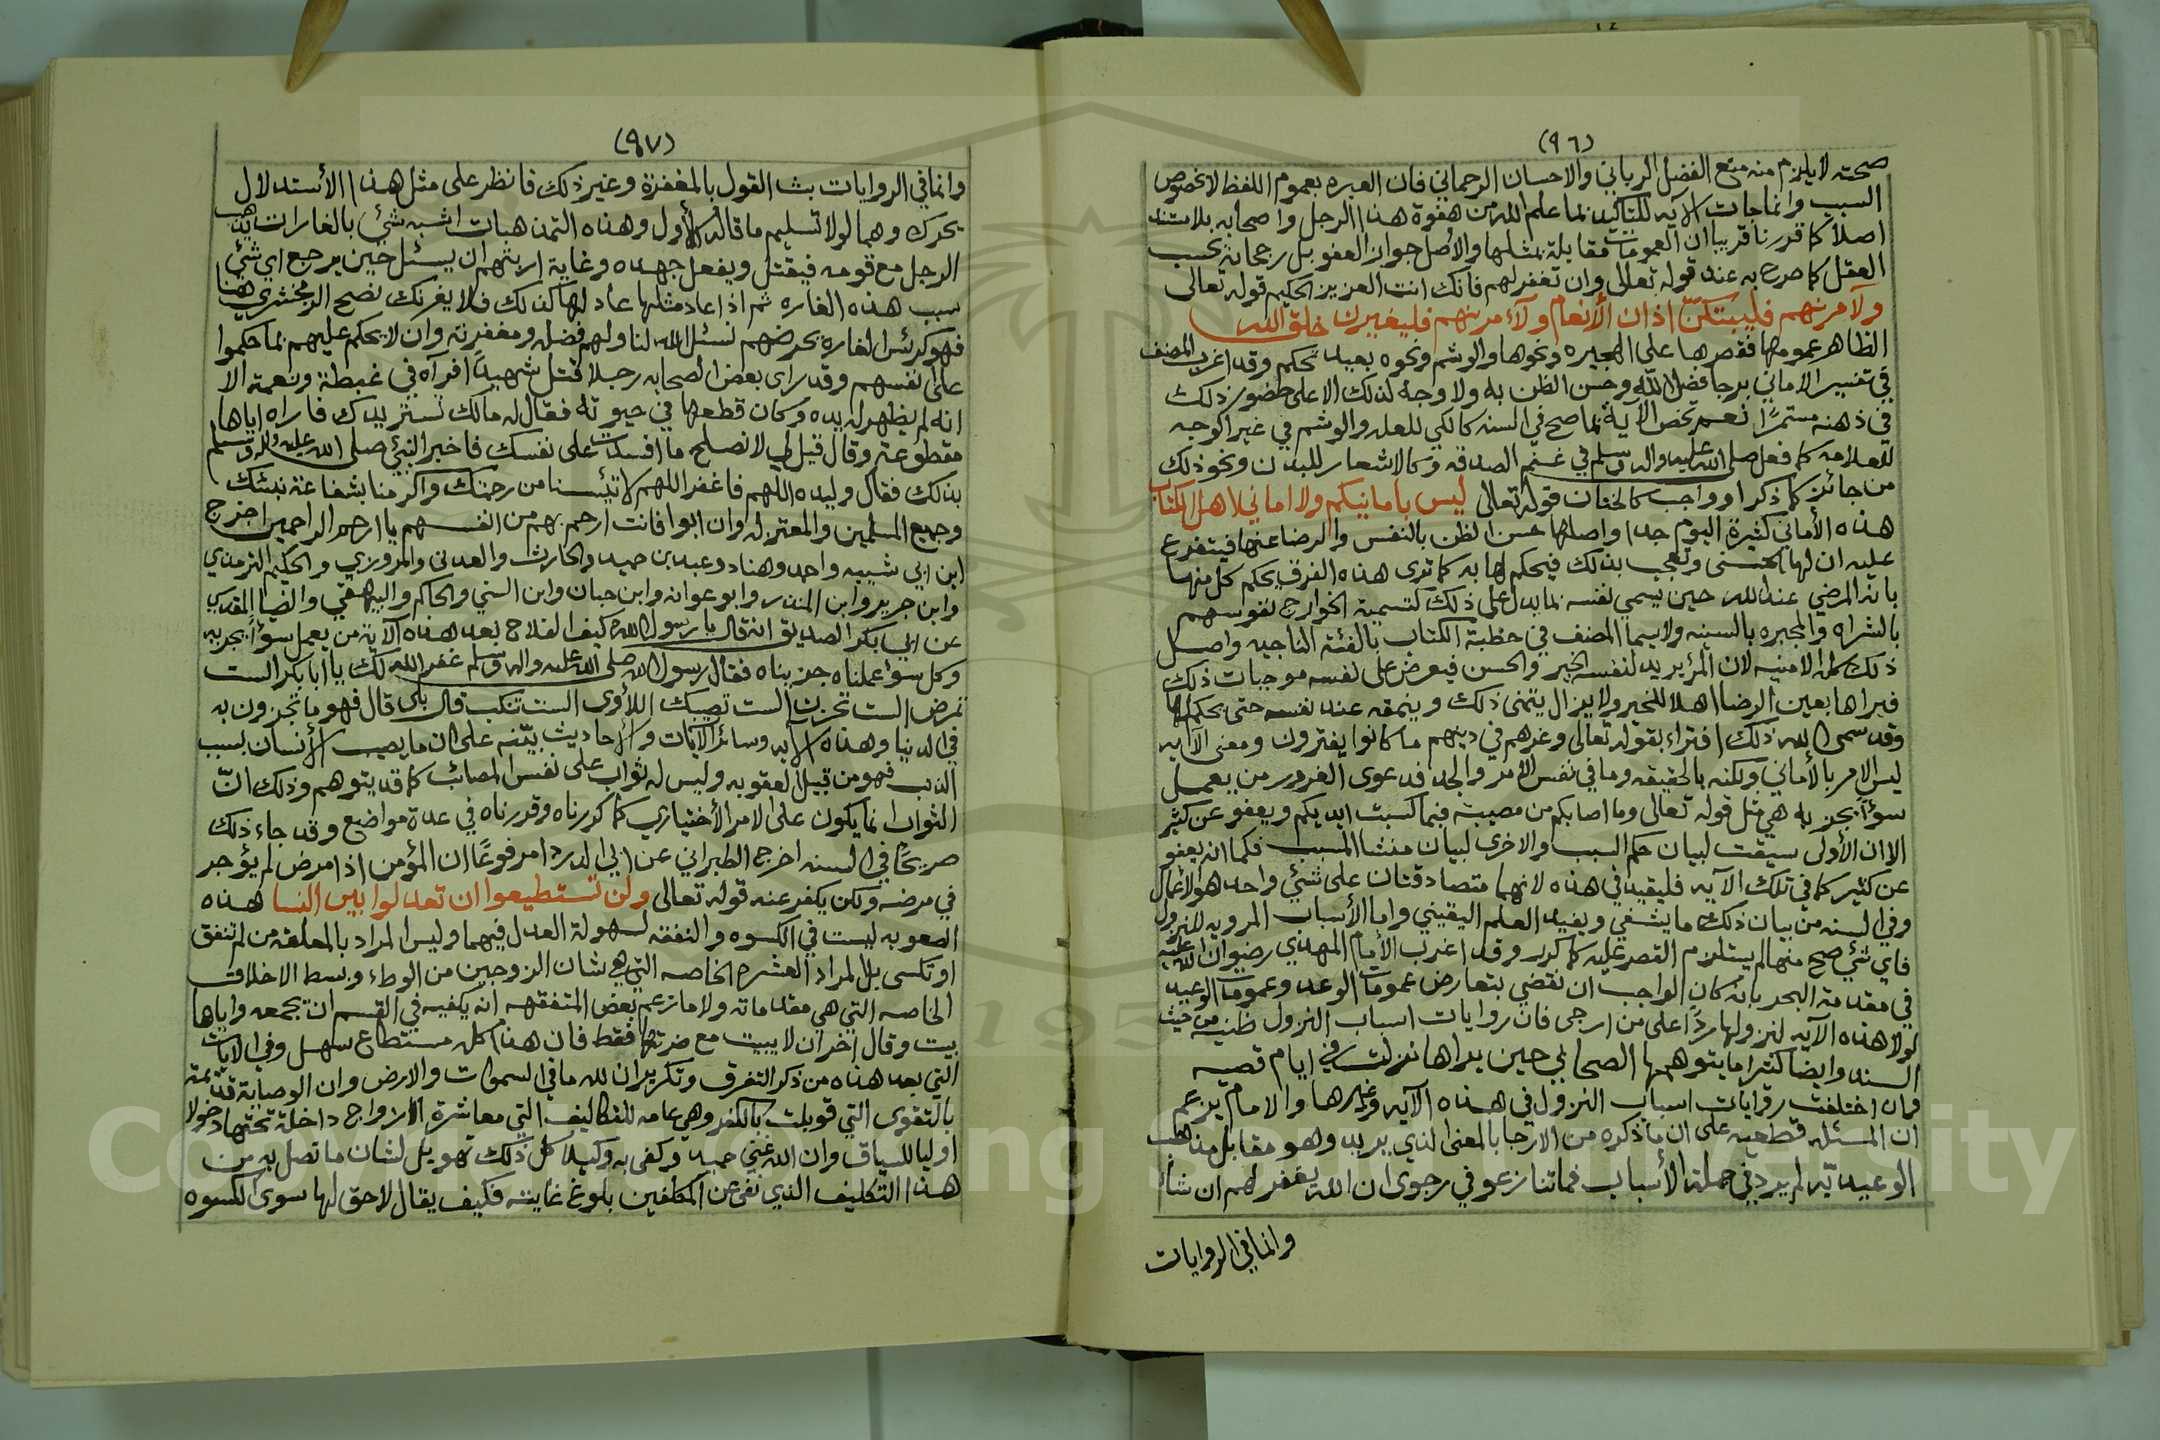 (٩٦)
صحته لا يلزم منه منع الفضل الرباني والاحسان الرحماني فان العبره بعموم اللفظ لا بخصوص
السبب وانما جات الآيه للتاكيد بما علم الله من هفوة هذا الرجل واصحابه بلا مستند
اصلا كما قررنا قريبا ان العمومات مقابلة بمثلها والاصل جواز العفو بل رجحانه بحسب
العقل كما صرح به عند قوله تعالى وان تغفر لهم فانك انت العزيز الحكيم قوله تعالى
ولآمرنهم فليبتكنّ اذان الأنعام ولآمرنهم فليغيرن خلق الله
الظاهر عمومها فقصرها على البحيره ونحوها والوشم ونحوه بعيد تحكم وقد اغرب المصنف
في تفسير الاماني برجا فضل الله وحسن الظن به ولا وجه لذلك الا على حضور ذلك
في ذهنه مستمرًا نعم تخص الآية بما صح في السنه كالكي للعله والوشم في غير الوجه
للعلامه كما فعل صلى الله عليه واله وسلم في غنم الصدقه وكالاشعار للبدن ونحو ذلك
من جائز كما ذكر او واجب كالختان قوله تعالى ليس بامانيكم ولا اماني اهل الكتاب
هذه الأماني كثيرة اليوم جدا واصلها حسن الظن بالنفس والرضا عنها فيتفرع
عليه ان لها الحسنى وتعجب بذلك فيحكم لها به كما ترى هذه الفرق يحكم كل منها
بانه المرضي عند الله حين يسمي نفسه بما يدل على ذلك كتسمية الخوارج نفوسهم
بالشراه والمجبره بالسنيه ولا سيما المصنف في خطبة الكتاب بالفئة الناجيه واصل
ذلك كله الامنيه لان المرء يريد لنفسه الخير والحسن فيعرض على نفسه موجبات ذلك
فيراها بعين الرضا اهلا للخير ولا يزال يتمنى ذلك وينمقه عند نفسه حتى يحكم لها
وقد سمى الله ذلك افتراء بقوله تعالى وغرهم في دينهم ما كانوا يفترون ومعنى الآيه
ليس الامر بالأماني ولكنه بالحقيقه وما في نفس الامر والجد فدعوى الغرور من يعمل
سوءًا يجز به هي مثل قوله تعالى وما اصابكم من مصيبة فبما كسبت ايديكم ويعفو عن كثير
الا ان الأولى سيقت لبيان حكم السبب والاخرى لبيان منشا المسبب فكما انه يعفو
عن كثير كما في تلك الآيه فليقيد في هذه لانهما متصادقتان على شئ واحد هو الاعمال
وفي السنه من بيان ذلك ما يشفي ويفيد العلم اليقيني واما الأسباب المرويه للنزول
فاي شئ صح منها لم يستلزم القصر عليه كما كرر وقد اغرب الأمام المهدي رضوان الله عليه
في مقدمة البحر بانه كان الواجب ان نقضي بتعارض عمومات الوعد وعمومات الوعيد
لولا هذه الآيه لنزولها ردًا على من ارجى فان روايات اسباب النزول ظنيه من حيث
السند وايضا كثيرا ما يتوهمها الصحابي حين يراها نزلت في ايام قصيه
وان اختلفت روايات اسباب النزول في هذه الآيه وغيرها والامام يزعم
ان المسئله قطعيه على ان ما ذكره من الارجا بالمعنى الذي يريد وهو مقابل مذهب
الوعيديّه لم يرد في جملة الأسباب فما تنازعو في رجوى ان الله يغفر لهم ان شاء
وانما في الروايات
(٩٧)
وانما في الروايات بث القول بالمغفرة وغير ذلك فانظر على مثل هذا الأستدلال
يحرك وهما لولا تسليم ما قاله الأول وهذه التمذهبات اشبه شئ بالغارات يذهب
الرجل مع قومه فيقتل ويفعل جهده وغاية اربتهم ان يسئل حين يرجع اي شئ
سبب هذه الغاره ثم اذا عاد مثلها عاد لها كذلك فلا يغرنك نصح الزمخشري هنا
فهو كرئس الغاره بحرضهم نسئل الله لنا ولهم فضله ومغفرته وان لا يحكم عليهم بما حكموا
على انفسهم وقد راى بعض الصحابه رجلا قتل شهيدًا فرآه في غبطة ونعمة الا
انه لم يظهر له يده وكان قطعها في حيوته فقال له مالك تستر يدك فاراه اياها
مقطوعة وقال قيل لي لا نصلح ما افسدت على نفسك فاخبر النبي صلى الله عليه واله وسلم
بذلك فقال وليده اللهم فاغفر اللهم لا تيئسنا من رحمتك واكرمنا بشفاعة نبيئك
وجميع المسلمين والمعتزله وان ابوا فانت ارحم بهم من انفسهم يا ارحم الراحمين اخرج
ابن ابي شيبه واحمد وهناد وعبد بن حميد والحارث والعدني والمروزي والحكيم الترمذي
وابن جرير وابن المنذر وابو عوانه وابن حبان وابن السني والحاكم والبيهقي والضيا المقدسي
عن ابي بكر الصديق انه قال يا رسول الله كيف الفلاح بعد هذه الآية من يعمل سوءًا يجز به
وكل سوء عملناه جزيناه فقال رسول الله صلى الله عليه واله وسلم غفر الله لك يا ابا بكر الست
تمرض الست تحزن الست تصيبك اللأوى الست تنكب قال بلى قال فهو ما تجزون به
في الدنيا وهذه الآيه وسائر الآيات والأحاديث بيّنه على ان ما يصيب الأنسان بسبب
الذنب فهو من قبيل العقوبه وليس له ثواب على نفس المصائب كما قد يتوهم وذلك انّ
الثواب انما يكون على الامر الأختياري كما كررناه وقررناه في عدة مواضع وقد جاء ذلك
صريحًا في السنه اخرج الطبراني عن ابي الدرداء مرفوعًا ان المؤمن اذا مرض لم يؤجر
في مرضه ولكن يكفر عنه قوله تعالى ولن تستطيعوا ان تعدلوا بين النسا هذه
الصعوبه ليست في الكسوه والنفقه لسهولة العدل فيهما وليس المراد بالمعلقه من لم تنفق
او تكسى بل المراد العشرة الخاصه التي هي شان الزوجين من الوطاء وبسط الاخلاق
الخاصه التي هي مقدماته ولا ما يزعم بعض المتفقهه انه يكفيه في القسم ان تجمعه واياها
بيت وقال اخر ان لا يبيت مع ضرتها فقط فان هذا كله مستطاع سهل وفي الايات
التي بعد هذه من ذكر التفرق وتكرير ان لله ما في السموات والارض وان الوصاية قديمة
بالتقوى التي قوبلت بالكفر وهي عامه للتكاليف التي معاشرة الازواج داخلة تحتها دخولا
اوليا للسياق وان الله غني حميد وكفى به وكيلا كل ذلك تهويل لشان ما تصل به من
هذا التكليف الذي نفى عن المكلفين بلوغ غايته فكيف يقال لا حق لها سوى الكسوه